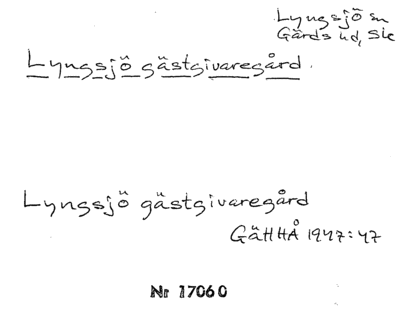 Lyngsjö sn
Gärds hd, Ske
Lyngsjö gästgivaregård.
Lyngsjö gästgivaregård
GäHHÅ 1947:47
Nr 17060